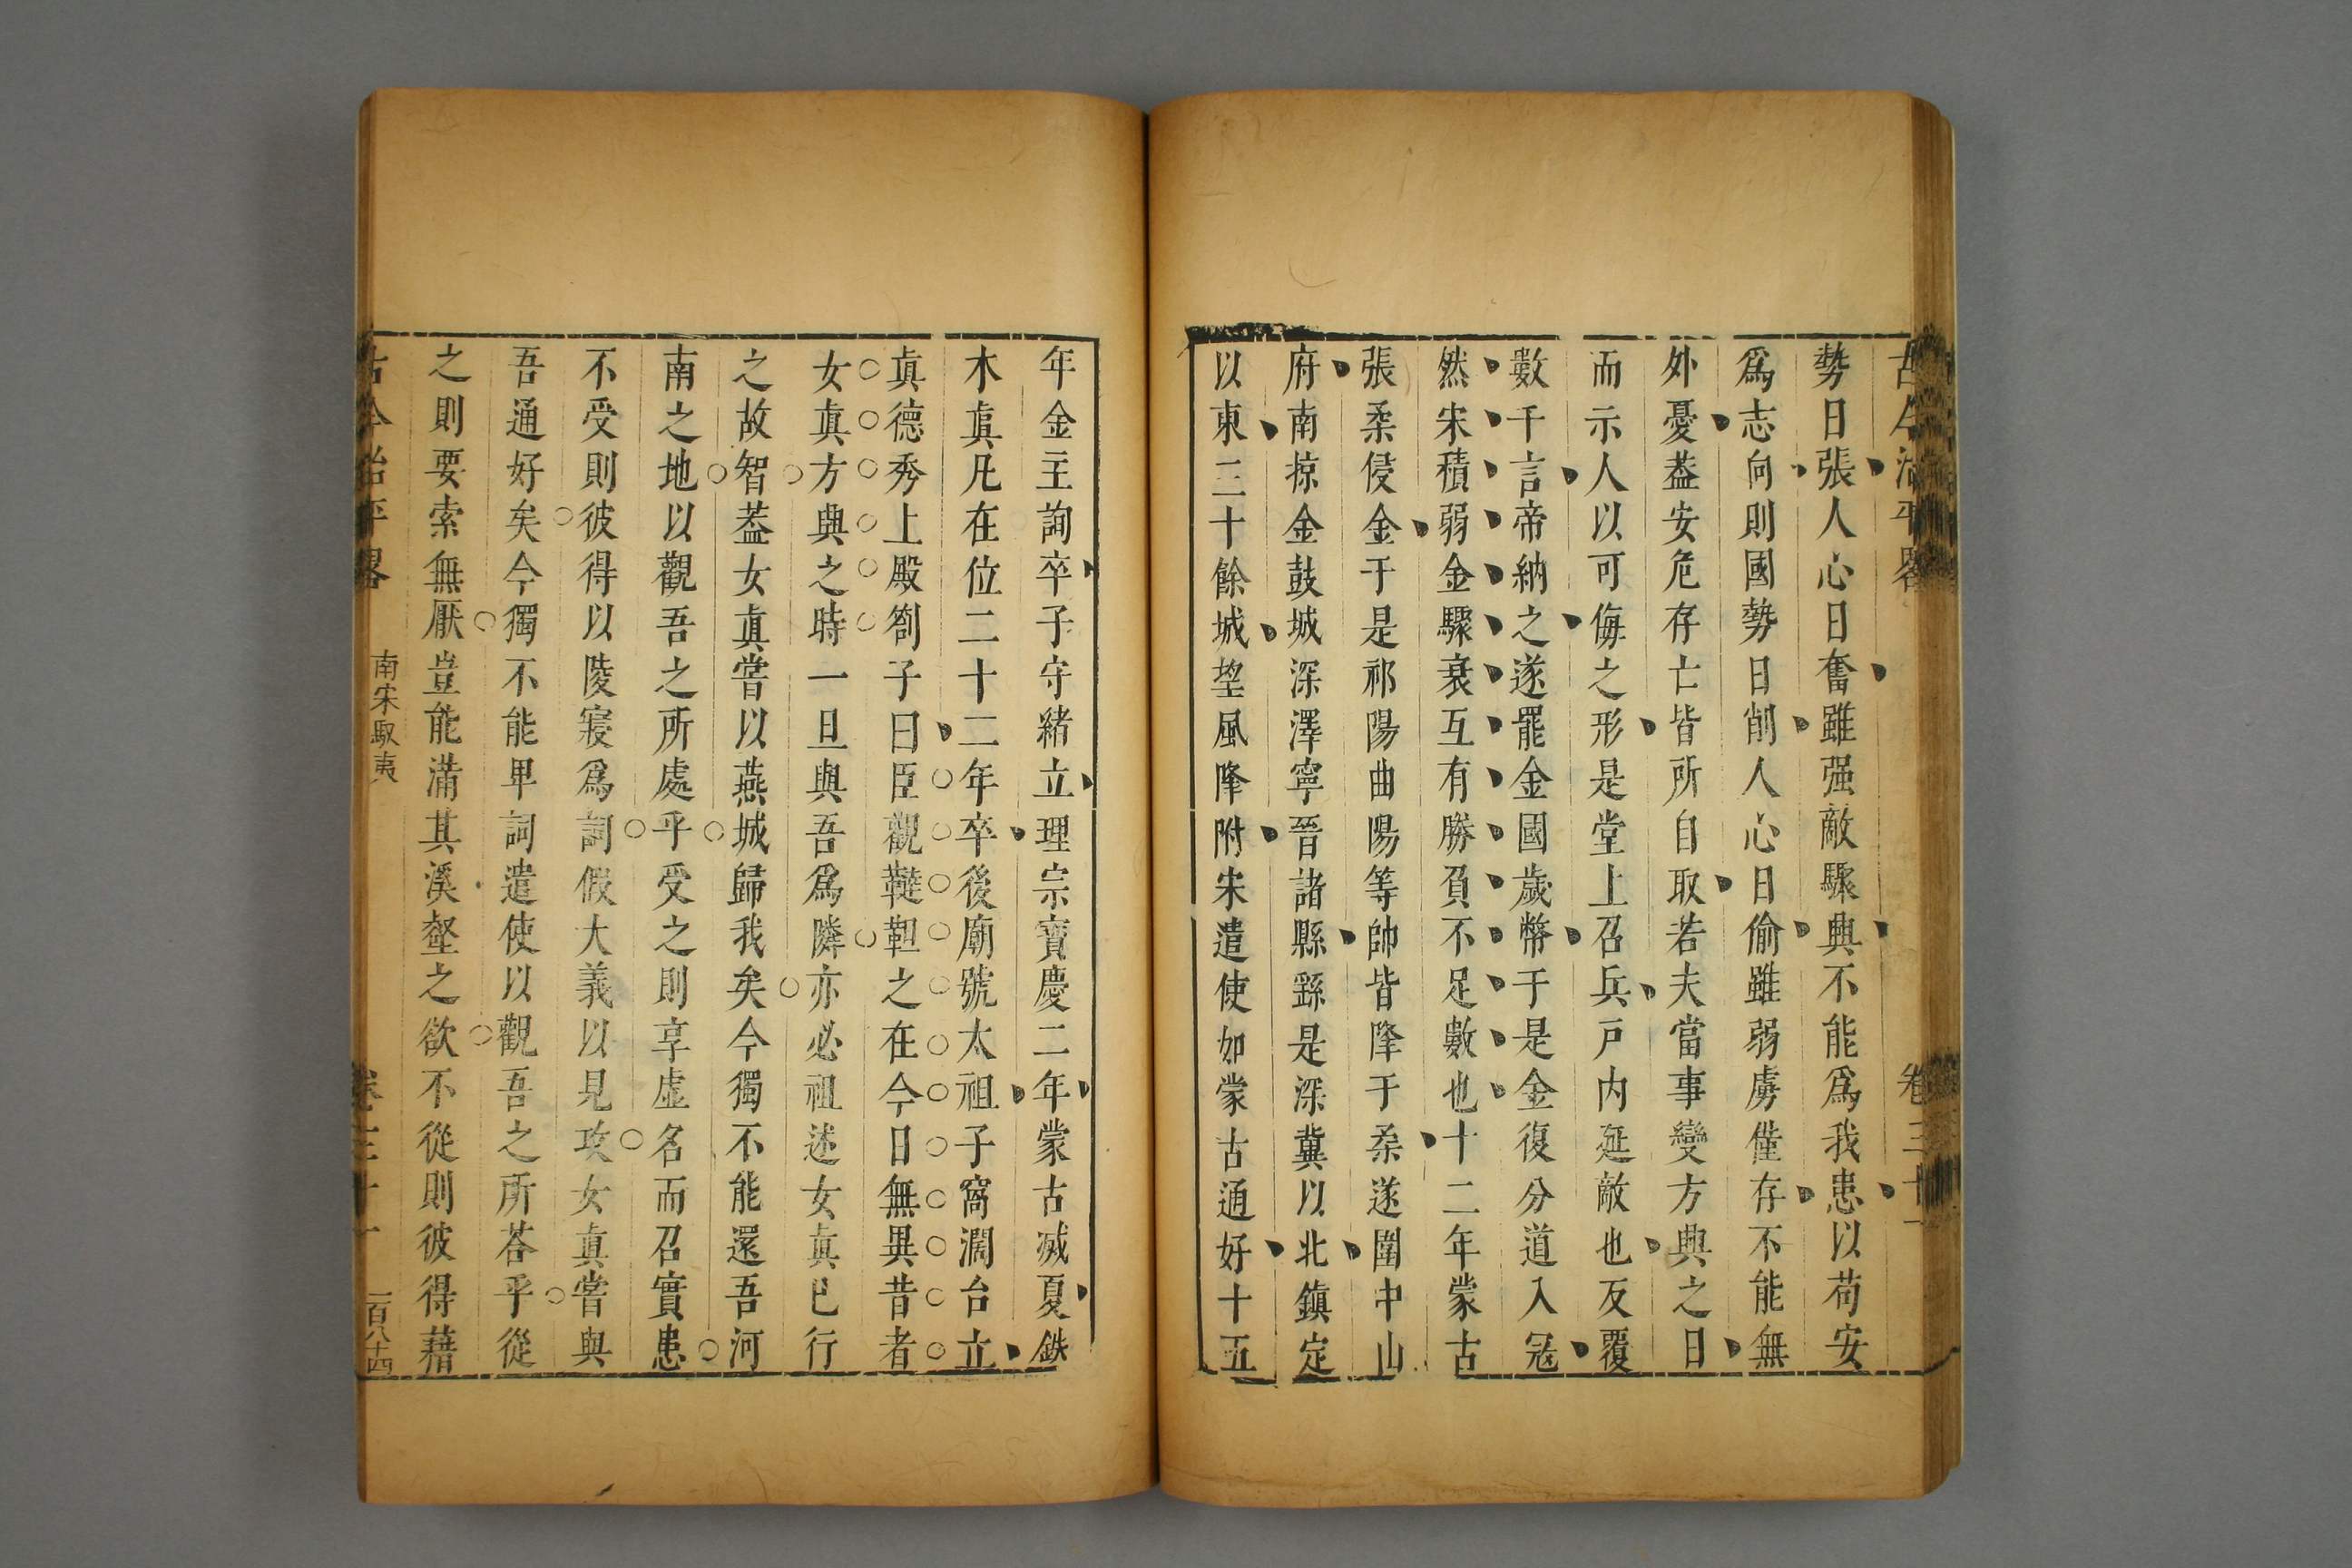 古今治平畧 卷三十一
勢日張人心日奮雖强敵驟興不能爲我患以苟安
爲志向則國勢日削人心日偷雖弱虜僅存不能無
外憂葢安危存亡皆所自取若夫當事變方興之日
而示人以可侮之形是堂上召兵戸内延敵也反覆
數千言帝納之遂罷金國歲幣于是金復分道入冦
然宋積弱金驟衰互有勝負不足數也十二年蒙古
張柔侵金于是祁陽曲陽等帥皆降于柔遂圍中山
府南掠金鼓城深澤寧晉諸縣繇是深冀以北鎮定
以東三十餘城望風降附宋遣使如蒙古通好十五
年金主詢卒子守緒立理宗寶慶二年蒙古滅夏鉄
木眞凡在位二十二年卒後廟號太祖子窩濶台立
眞德秀上殿劄子曰臣觀韃靼之在今日無異昔者
女眞方興之時一旦與吾爲隣亦必祖述女眞已行
之故智葢女眞嘗以燕城歸我矣今獨不能還吾河
南之地以觀吾之所處乎受之則享虛名而召實患
不受則彼得以陵寢爲詞假大義以見攻女眞嘗與
吾通好矣今獨不能卑詞遣使以觀吾之所荅乎從
之則要索無厭豈能滿其溪壑之欲不從則彼得藉
古今治平畧 南宋馭夷 卷三十一 一百八十四